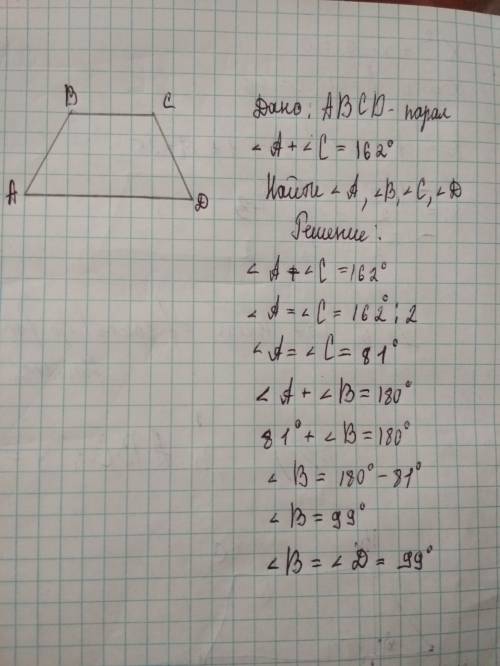 B C
A D
Дано: ABCD - парал
∠A + ∠C = 162°
Найти ∠A, ∠B, ∠C, ∠D
Решение:
∠A + ∠C = 162°
∠A = ∠C = 162° : 2
∠A = ∠C = 81°
∠A + ∠B = 180°
81° + ∠B = 180°
∠B = 180° - 81°
∠B = 99°
∠B = ∠D = 99°